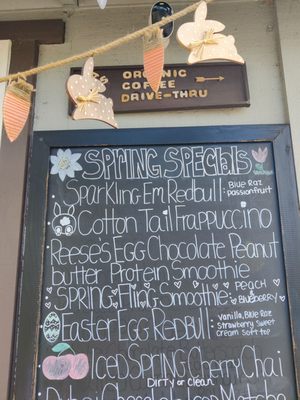 ORGANIC
COFFEE
DRIVE-THRU
SPRING SPECIALS
SPARKLING EM REDBULL: BLUE RAZ
PASSIONFRUIT
COTTON TAIL FRAPPUCCINO
REESE'S EGG CHOCOLATE PEANUT
BUTTER PROTEIN SMOOTHIE
SPRING FLING SMOOTHIE: PEACH
BLUEBERRY
EASTER EGG REDBULL: VANILLA, BLUE RAZ
STRAWBERRY SWEET
CREAM SOFT TOP
ICED SPRING CHERRY CHAI
DIRTY OR CLEAN
CHOCOLATE ICED MATCHA